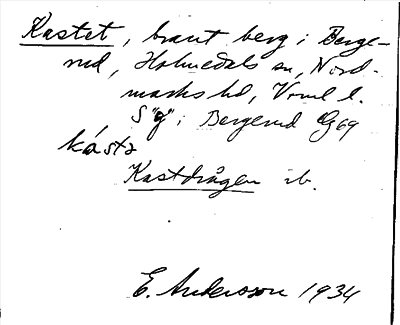 Kastet, brant berg i Berge-
rud, Holmedals sn, Nord-
marks hd, Vrml l.
S "g" i Bergerud Gg 69
kásta
Kastdrågen ib.
E. Andersson 1934